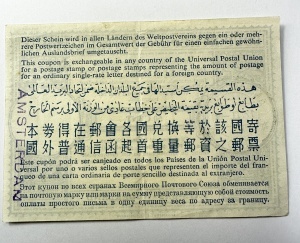 Dieser Schein wird in allen Ländern des Weltpostvereins gegen ein oder meh-
rere Postwertzeichen im Gesamtwert der Gebühr für einen einfachen gewöhn-
lichen Auslandsbrief umgetauscht.
This coupon is exchangeable in any country of the Universal Postal Union
for a postage stamp or postage stamps representing the amount of postage
for an ordinary single-rate letter destined for a foreign country.
本券得在郵會各國兌換等於該國寄
國外普通信函起首重量郵資之郵票
Este cupón podrá ser canjeado en todos los Países de la Unión Postal Uni-
versal por uno o varios sellos postales que representen el importe del fran-
queo de una carta ordinaria de porte sencillo destinada al extranjero.
Этот купон во всех странах Всемирного Почтового Союза обменивается
на почтовую марку или марки на сумму представляющую собой стоимость
оплаты простого письма в одну единицу веса по адресу за границу.
AMSTERDAM